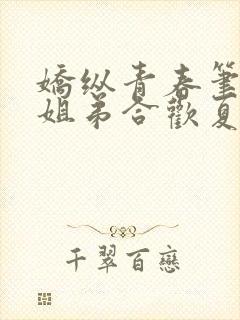 嬌纵青春筆
姐弟合歡夏
千翠百戀